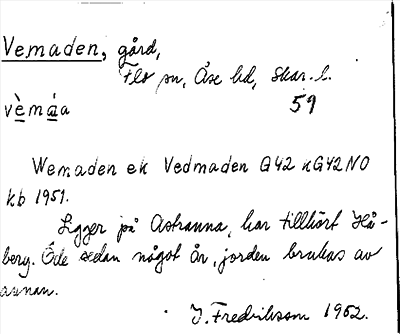 Vemaden, gård,
Flo sn, Åse hd, Skar. l.
vèmáa 59
Wemaden ek Vedmaden G42 kG42NO
kb 1951.
Ligger på Åstranna, har tillhört Hå-
berg. Öde sedan något år, jorden brukas av
annan.
J. Fredriksson 1962.